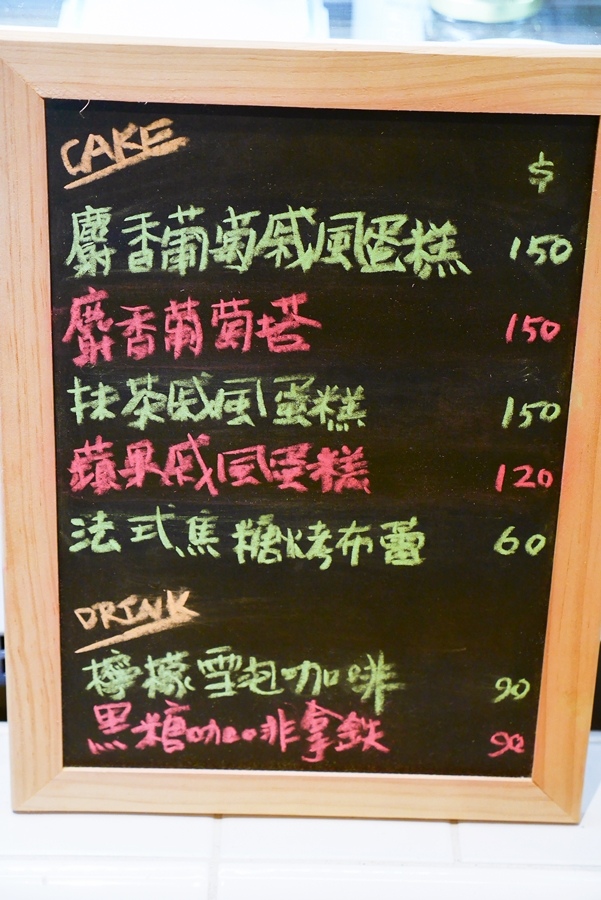 CAKE
$
麝香葡萄戚風蛋糕 150
麝香葡萄塔 150
抹茶戚風蛋糕 150
蘋果戚風蛋糕 120
法式焦糖烤布蕾 60
DRINK
檸檬雪泡咖啡 90
黑糖咖啡拿鉄 90